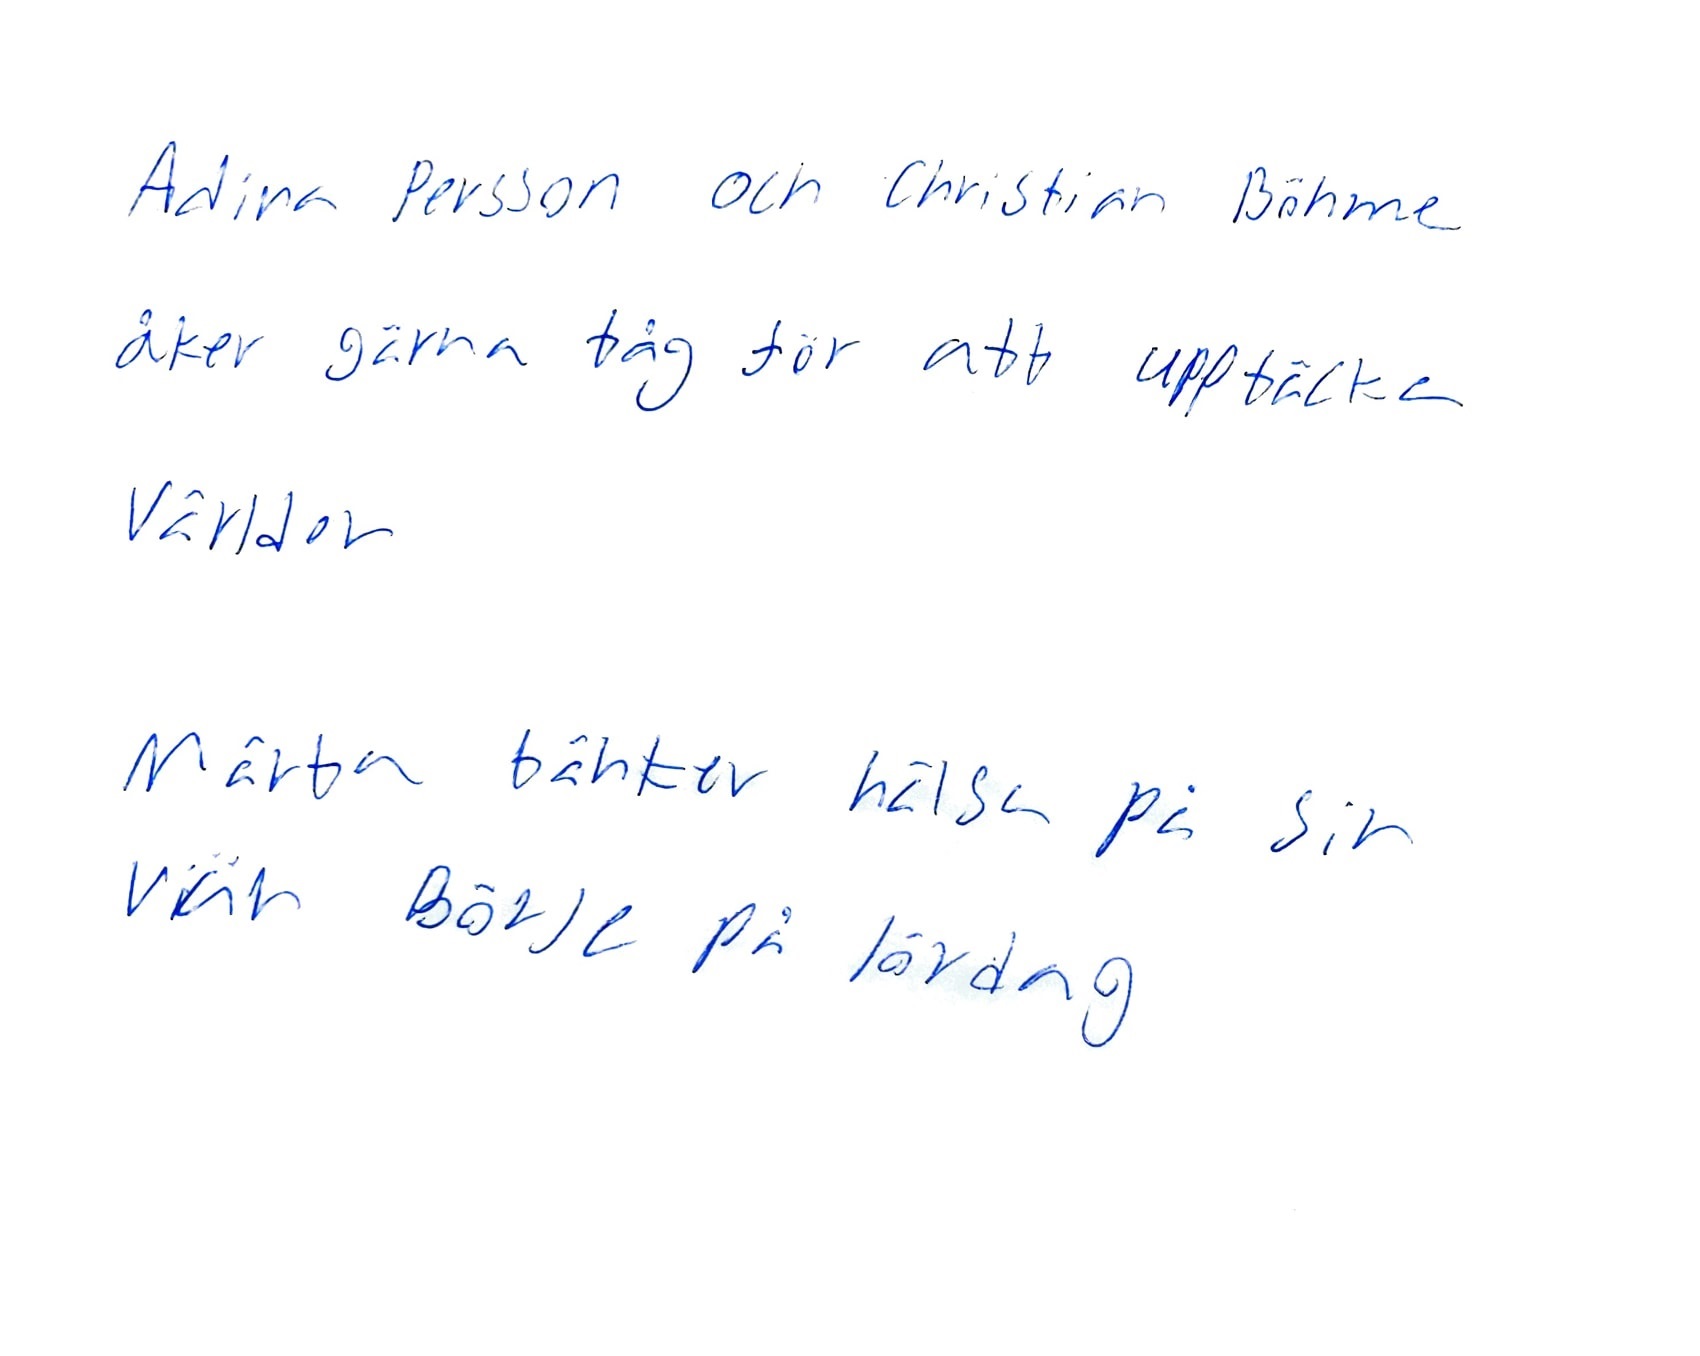 Adina Persson och Christian Böhme
åker gärna tåg för att upptäcka
världen
Märta tänker hälsa på sin
vän Börje på lördag